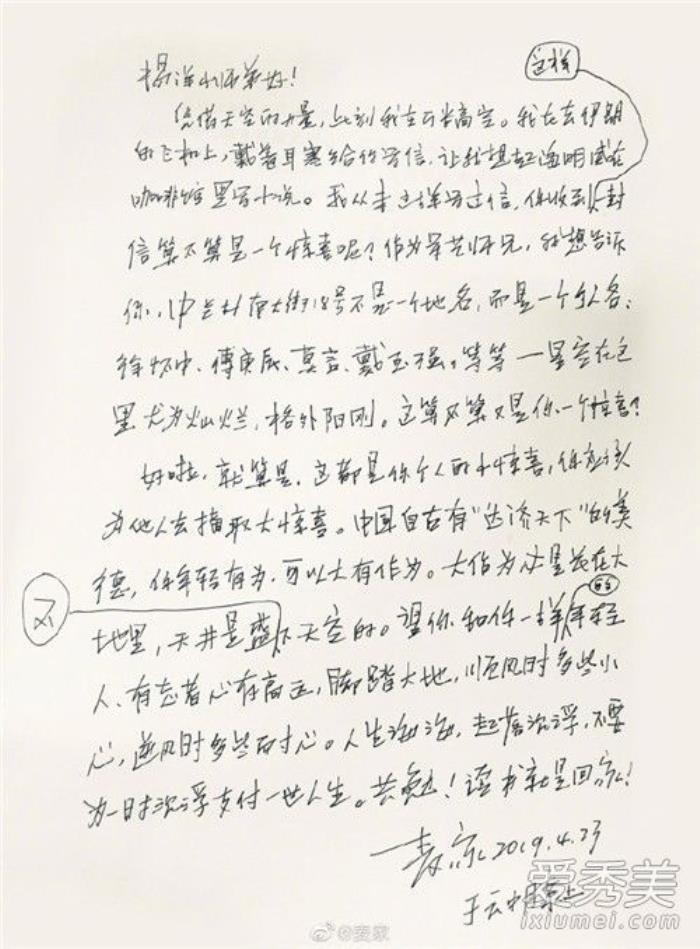 杨洋小师弟好！
这样
凭借天空的力量，此刻我在万米高空。我在去伊朗
的飞机上，戴着耳塞给你写信，让我想起海明威在
咖啡馆里写小说。我从未这样写过信，你收到这封
信算不算是一个惊喜呢？作为军艺师兄，我想告诉
你，中关村南大街18号不是一个地名，而是一个人名：
徐怀中、傅庚辰、莫言、戴玉强。等等一星空在它
里尤为灿烂，格外阳刚。这算不算又是你一个惊喜？
好啦，就算是，这都是你个人的小惊喜，你应该
为他人去摘取大惊喜。中国自古有“达济天下”的美
德，你年轻有为，可以大有作为。大作为必是长在大
的
不
地里，天井是盛下天空的。望你和你一样年轻
人、有志者心有高远，脚踏大地，顺风时多些小
心，逆风时多些耐心。人生海海，起落沉浮，不要
为一时沉浮支付一世人生。共勉！读书就是回家！
麦家 2019.4.23
于云中
@麦家
爱秀美
ixiumei.com